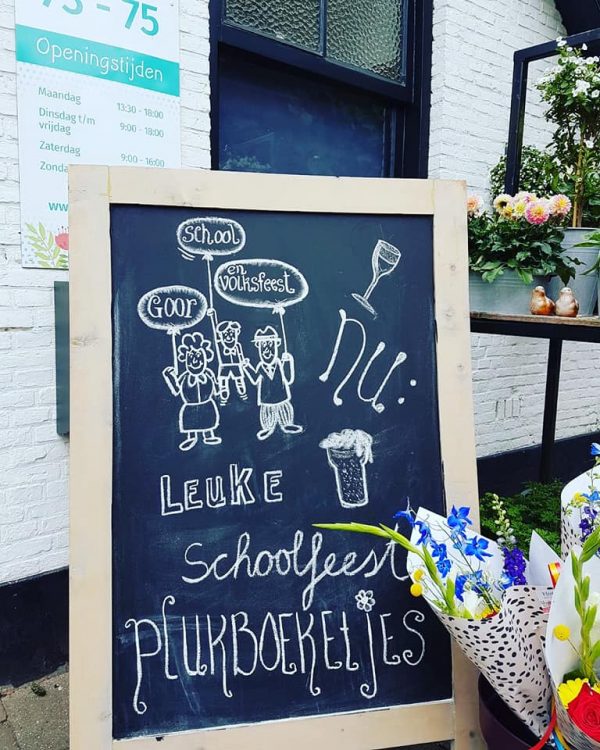 73 - 75
Openingstijden
Maandag 13:30 - 18:00
Dinsdag t/m
vrijdag 9:00 - 18:00
Zaterdag 9:00 - 16:00
School
en
volksfeest
Goor
nu:
LEUKE
Schoolfeest
PLUKBOEKETJES